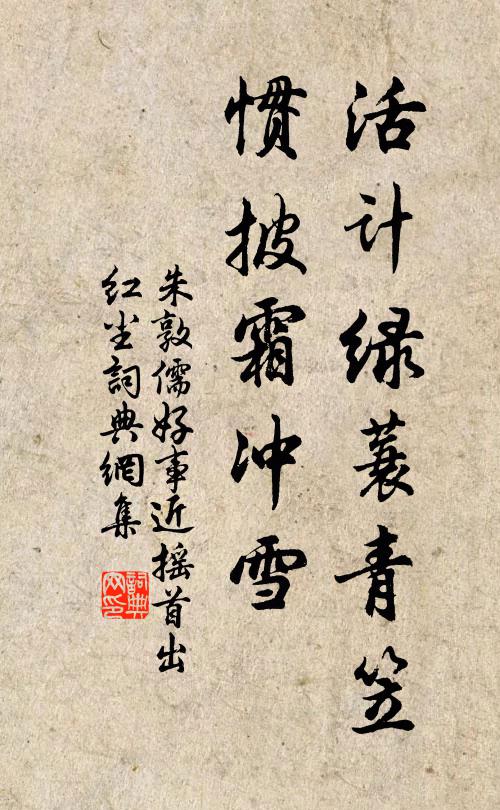 活计绿蓑青笠
惯披霜冲雪
朱敦儒好事近摇首出
红尘词典網集
詞典
网印